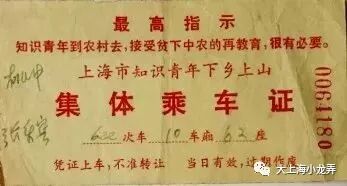 最高指示
知识青年到农村去，接受贫下中农的再教育，很有必要。
上海市知识青年下乡上山
集体乘车证
次车 10 车厢 62 座
凭证上车，不准转让 当日有效，过期作废
0064180
大上海小龙弄